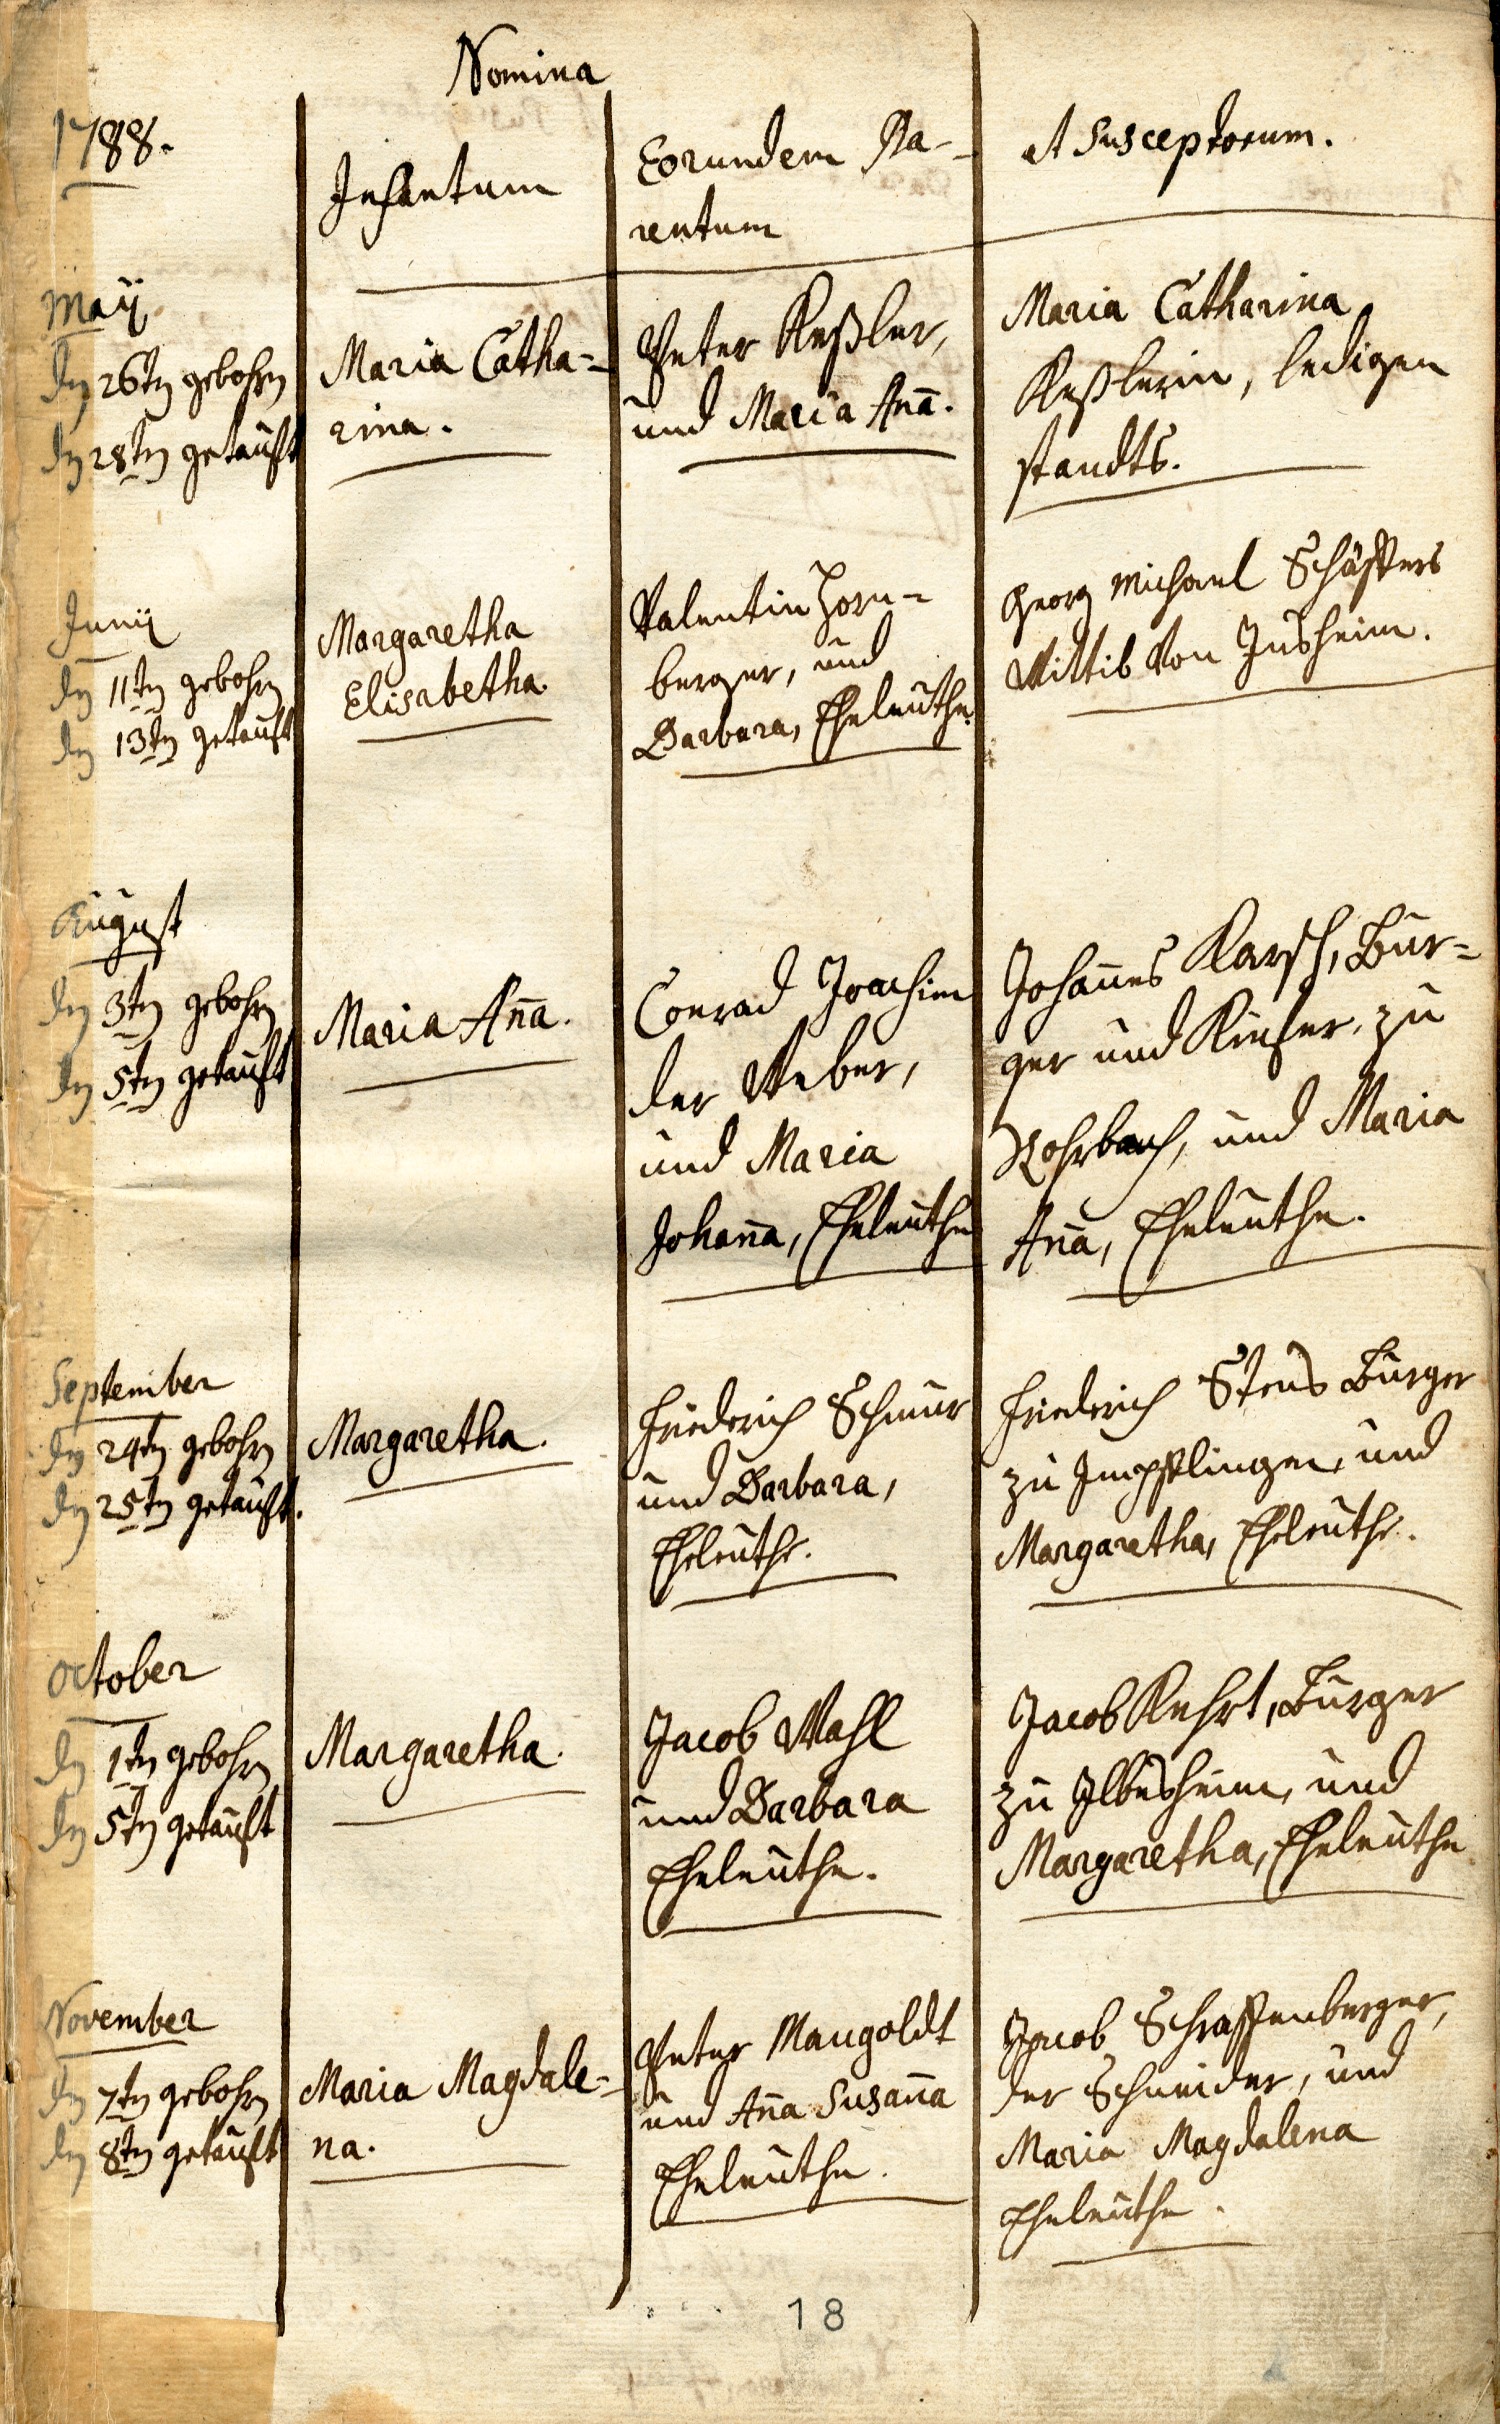 Nomina
1788.
Infantum
Eorundem Pa-
rentum
et Susceptorum.
Maÿ
den 26ten gebohren
den 28ten getauft
Maria Catha-
rina.
Peter Keßler,
und Maria Aña.
Maria Catharina
Keßlerin, ledigen
standts.
Junÿ
den 11ten gebohren
den 13ten getauft
Margaretha
Elisabetha.
Valentin Horn-
berger, und
Barbara, Eheleuthe.
Georg Michael Schäffers
Wittib von Insheim.
August
den 3ten gebohren
den 5ten getauft
Maria Aña.
Conrad Joachim
der Weber,
und Maria
Johaña, Eheleuthe
Johañes Karsch, Bur-
ger und Kiefer, zu
Rohrbach, und Maria
Aña, Eheleuthe.
September
den 24ten gebohren
den 25ten getauft.
Margaretha.
Friederich Schnur
und Barbara,
Eheleuthe.
Friederich Burger
zu Impflingen, und
Margaretha, Eheleuthe.
October
den 1ten gebohren
den 5ten getauft
Margaretha.
Jacob Wahl
und Barbara
Eheleuthe.
Jacob Kehrt, Burger
zu Ilbesheim, und
Margaretha, Eheleuthe
November
den 7ten gebohren
den 8ten getauft
Maria Magdale-
na.
Peter Mangoldt
und Aña Susaña
Eheleuthe.
Jacob Schraffenberger,
der Schneider, und
Maria Magdalena
Eheleuthe.
18